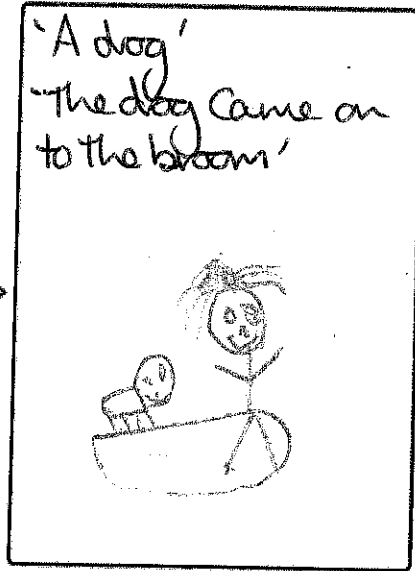 'A dog'
'The dog came on
to the broom'